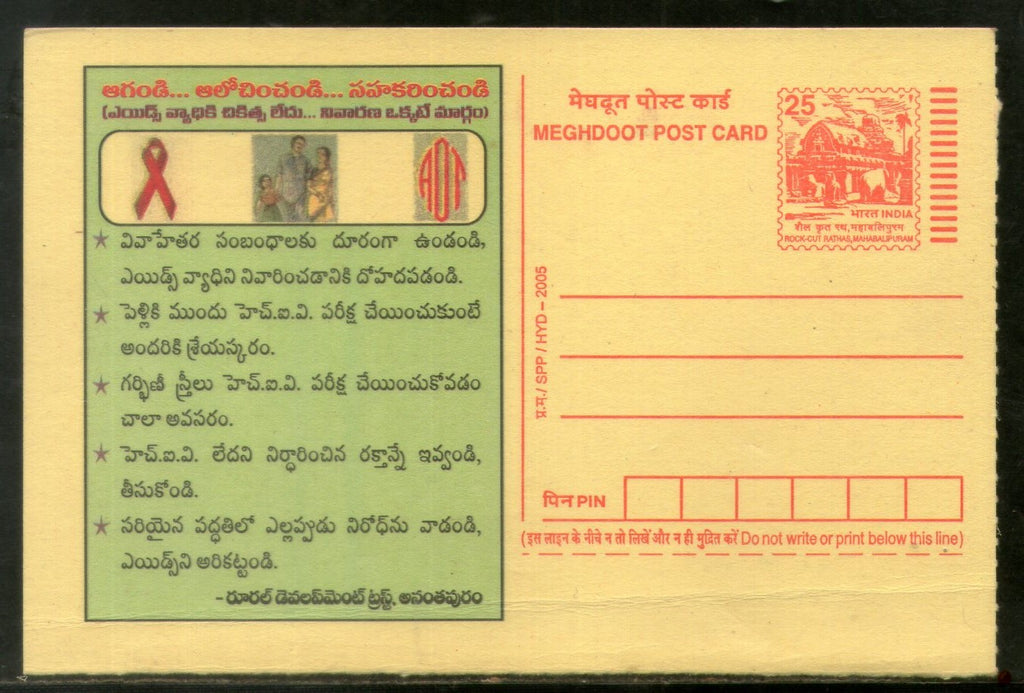 ఆగండి... ఆలోచించండి... సహకరించండి
(ఎయిడ్స్ వ్యాధికి చికిత్స లేదు... నివారణ ఒక్కటే మార్గం)
★ వివాహేతర సంబంధాలకు దూరంగా ఉండండి,
ఎయిడ్స్ వ్యాధిని నివారించడానికి దోహదపడండి.
★ పెళ్లికి ముందు హెచ్.ఐ.వి. పరీక్ష చేయించుకుంటే
అందరికి శ్రేయస్కరం.
★ గర్భిణీ స్త్రీలు హెచ్.ఐ.వి. పరీక్ష చేయించుకోవడం
చాలా అవసరం.
★ హెచ్.ఐ.వి. లేదని నిర్ధారించిన రక్తాన్నే ఇవ్వండి,
తీసుకోండి.
★ సరియైన పద్ధతిలో ఎల్లప్పుడు నిరోధ్‌ను వాడండి,
ఎయిడ్స్‌ని అరికట్టండి.
- రూరల్ డెవలప్‌మెంట్ ట్రస్ట్, అనంతపురం
मेघदूत पोस्ट कार्ड
MEGHDOOT POST CARD
25
भारत INDIA
शैल कृत रथ, महाबलिपुरम
ROCK-CUT RATHAS, MAHABALIPURAM
प्र.म./ SPP / HYD – 2005
पिन PIN
(इस लाइन के नीचे न तो लिखें और न ही मुद्रित करें Do not write or print below this line)